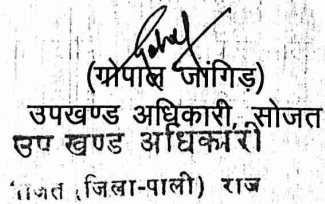 (गोपाल जांगिड़)
उपखण्ड अधिकारी, सोजत
उप खण्ड अधिकारी
(जिला-पाली) राज